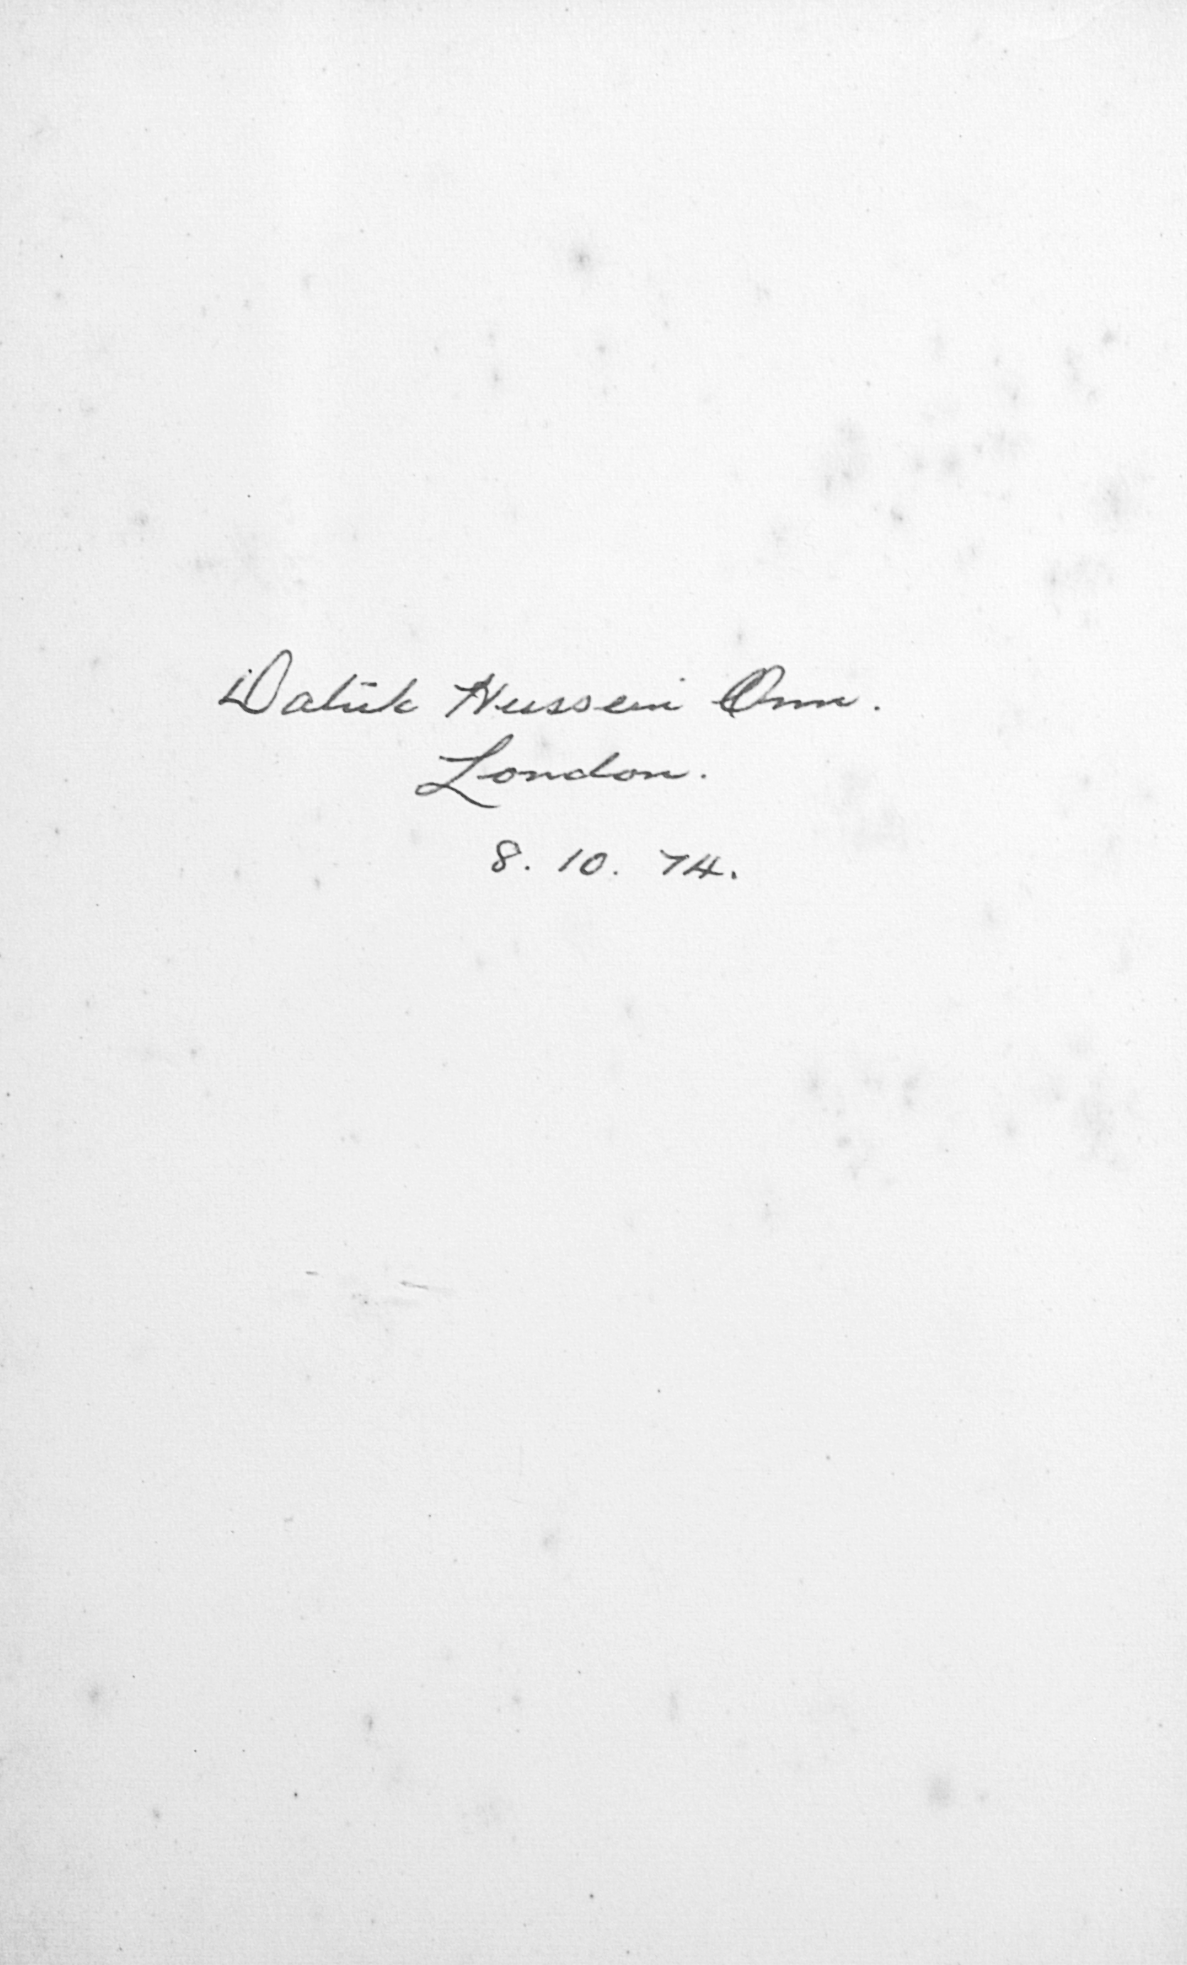 Datuk Hussein Onn.
London.
8. 10. 74.